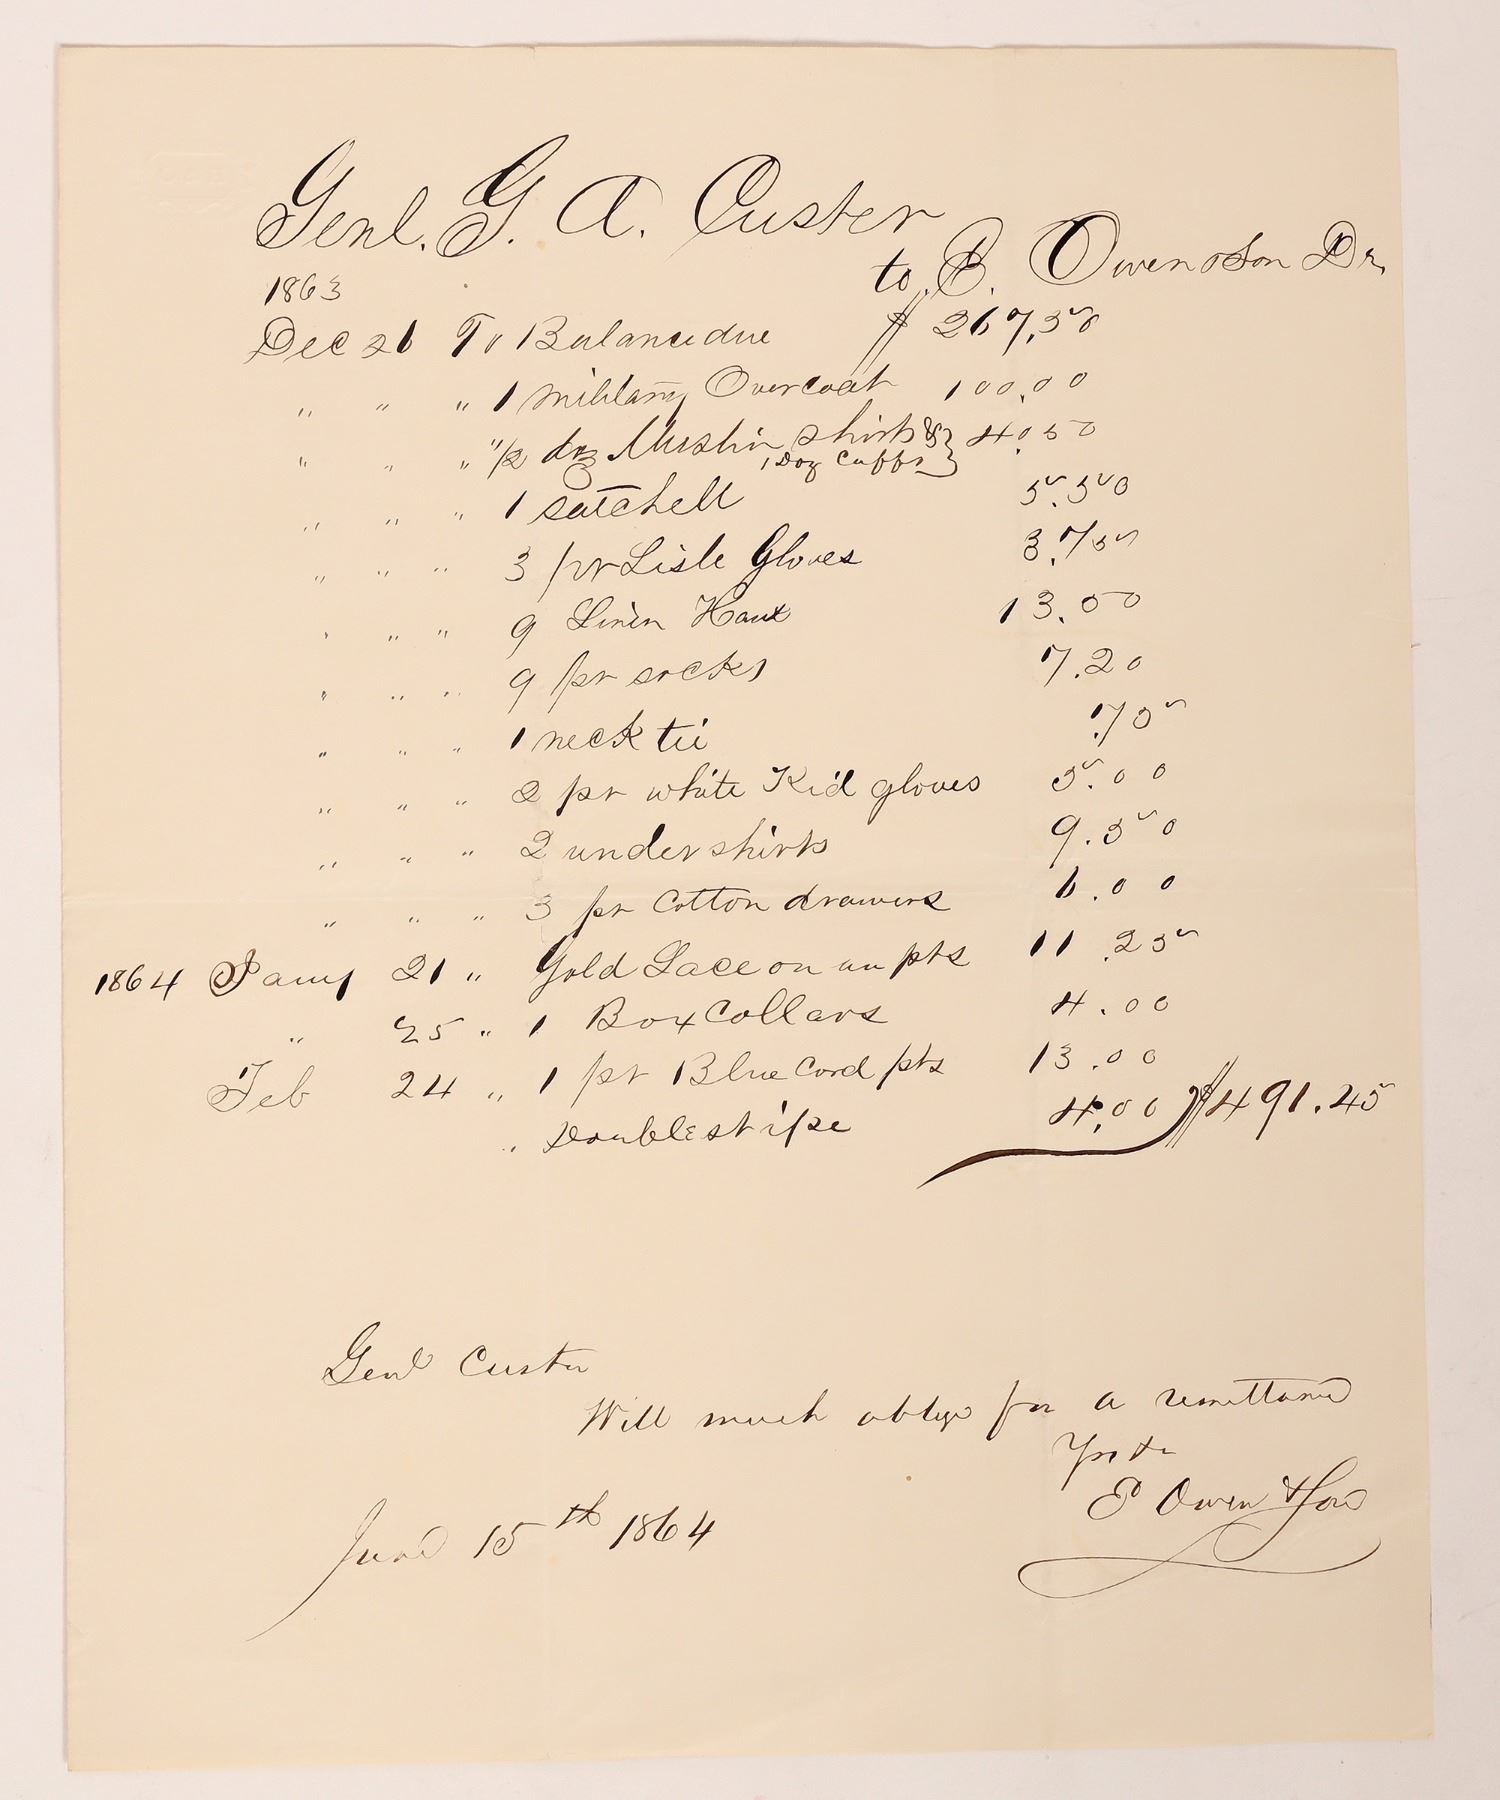 Genl. G. A. Custer
to E. Owen & Son Dr.
1863
Dec 26 To Balance due $ 267.50
" " " 1 military Overcoat 100.00
" " " 1/2 doz Muslin shirts & } 40.50
1 Doz Cuffs }
" " " 1 satchell 5.50
" " " 3 pr Lisle Gloves 3.75
" " " 9 Linen Hanx 13.50
" " " 9 pr socks 7.20
" " " 1 neck tie .75
" " " 2 pr white Kid gloves 5.00
" " " 2 undershirts 9.50
" " " 3 pr Cotton drawers 6.00
1864 Jany 21 " Gold Lace on un pts 11.25
" 25 " 1 Box Collars 4.00
Feb 24 " 1 pr Blue Cord pts 13.00
" Double stripe 4.00 $491.45
Genl Custer
Will much oblige for a remittance
Yrs &c
E Owen & Son
June 15th 1864